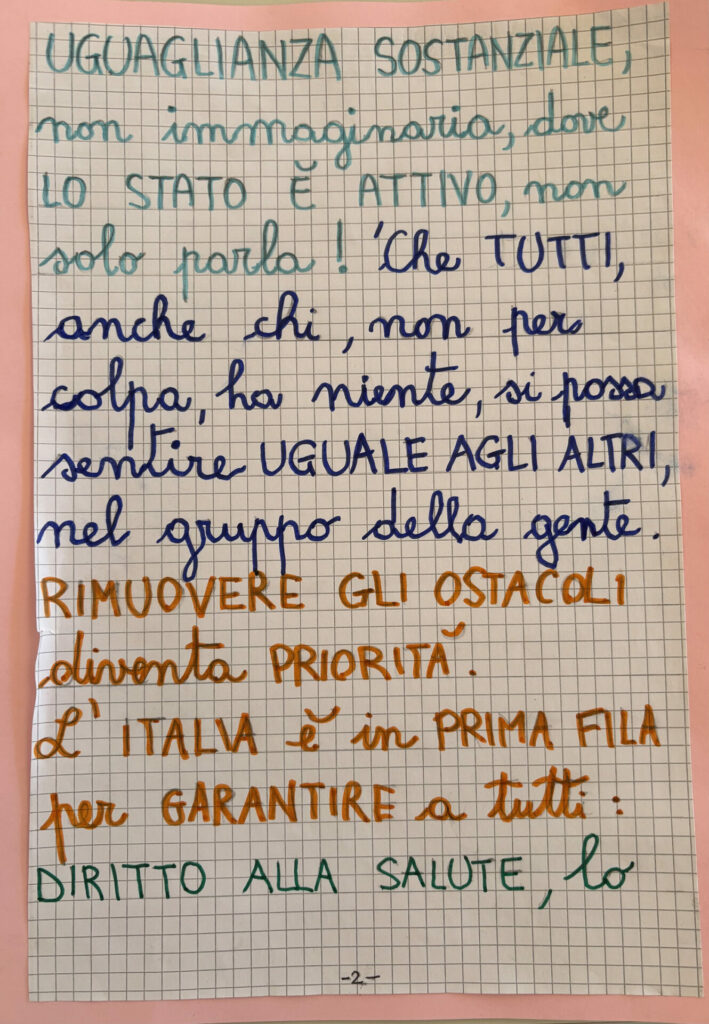 UGUAGLIANZA SOSTANZIALE,
non immaginaria, dove
LO STATO È ATTIVO, non
solo parla! 'Che TUTTI,
anche chi, non per
colpa, ha niente, si possa
sentire UGUALE AGLI ALTRI,
nel gruppo della gente.
RIMUOVERE GLI OSTACOLI
diventa PRIORITÀ.
L'ITALIA è in PRIMA FILA
per GARANTIRE a tutti:
DIRITTO ALLA SALUTE, lo
-2-